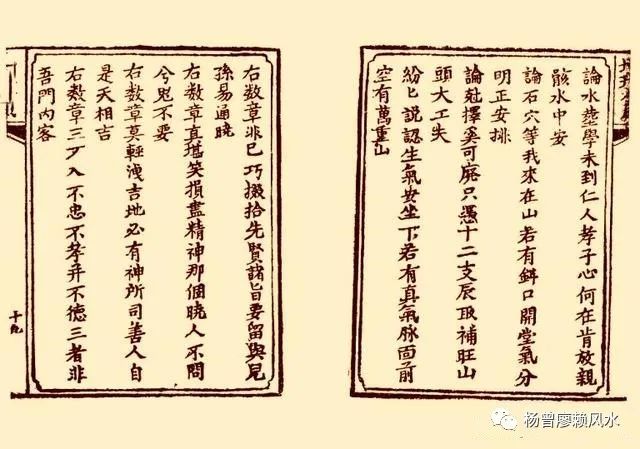 論水塟學未到仁人孝子心何在肯放親
骸水中安
論石穴等我來在山若有口開堂氣分
明正安排
論尅擇奚可廢只憑十二支辰取補旺山
頭大工失
紛匕説認生氣安坐下若有真氣脉面前
空有萬重山
右数章非已巧掇拾先賢諸旨要留與兒
孫易通曉
右数章直堪笑損盡精神那個曉人不問
兮鬼不要
右数章莫輕洩吉地必有神所司善人自
是天相吉
右数章三丆入不忠不孝并不德三者非
吾門内客
十九
杨曾廖赖风水